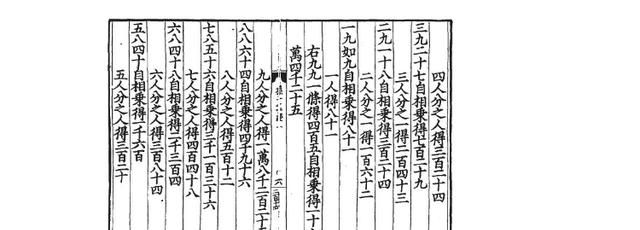 四人分之人得三百二十四
三九二十七自相乘得七百二十九
三人分之人得二百四十三
二九一十八自相乘得三百二十四
二人分之人得一百六十二
一九如九自相乘得八十一
一人得八十一
右九九一條得四百五自相乘得一十
萬四千二十五
九人分之人得一萬八千二百二十
八八六十四自相乘得四千九十六
八人分之人得五百十二
七八五十六自相乘得三千一百三十六
七人分之人得四百四十八
六八四十八自相乘得二千三百四
六人分之人得三百八十四
五八四十自相乘得一千六百
五人分之人得三百二十